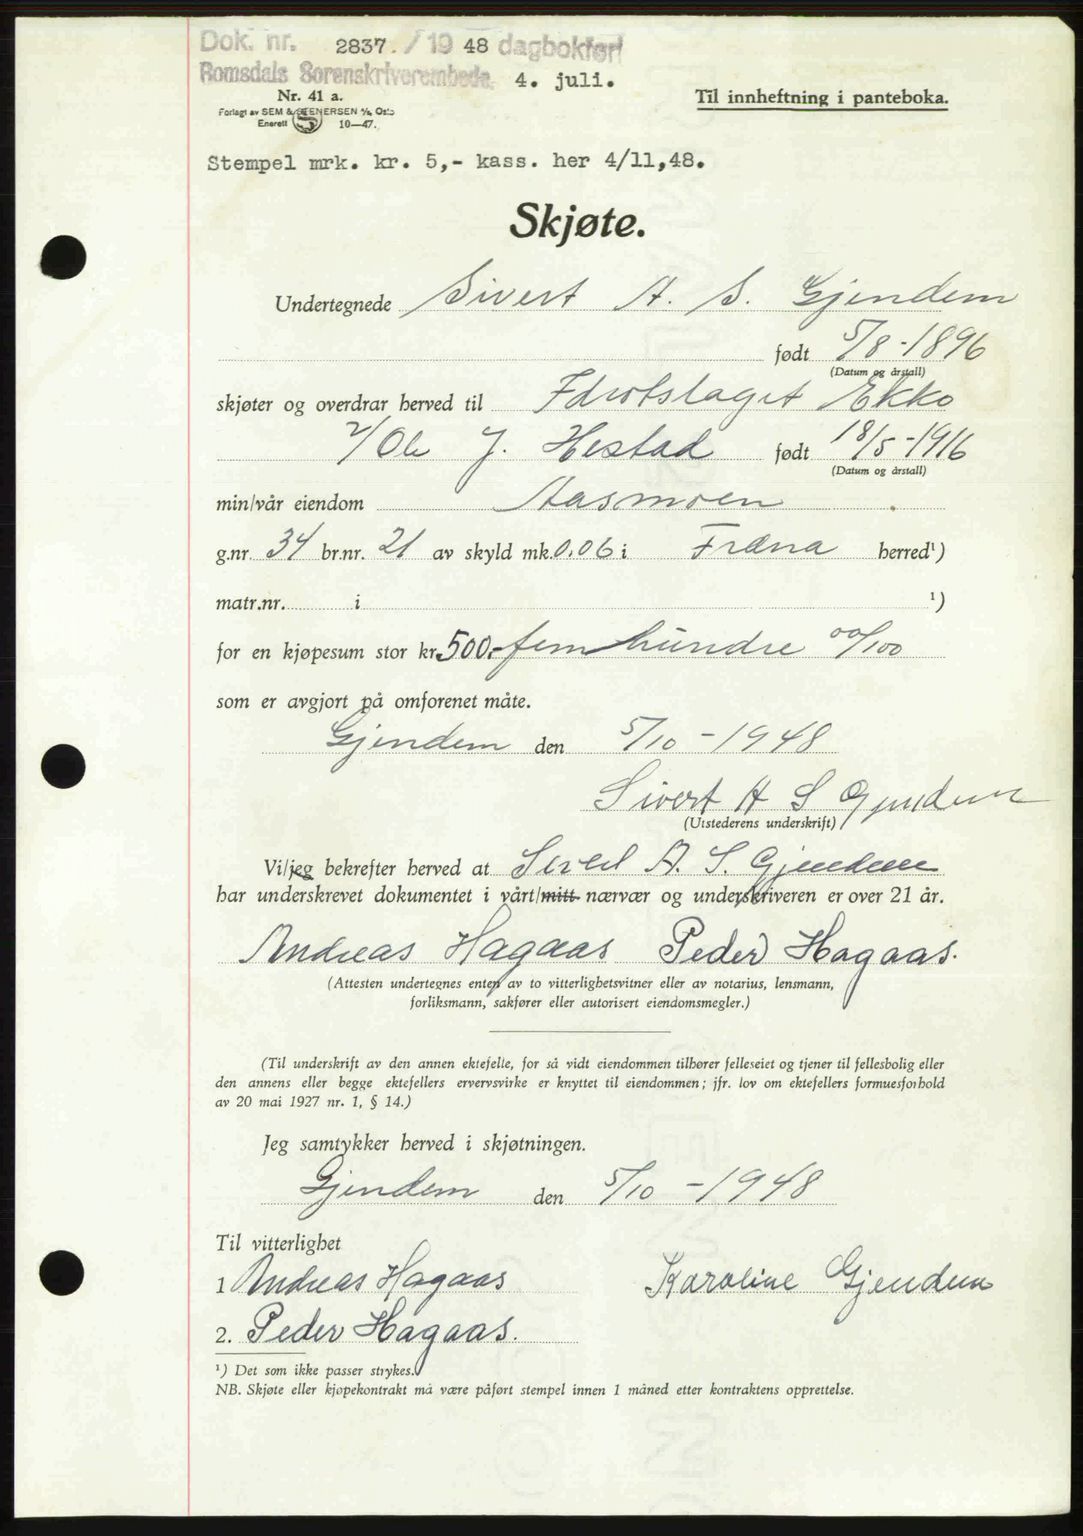 Dok. nr. 2837. / 1948 dagbokført
Romsdals Sorenskriverembede 4. juli.
Nr. 41 a.
Forlagt av SEM & STENERSEN A/S, Oslo
Enerett 10—47.
Til innheftning i panteboka.
Stempel mrk. kr. 5,- kass. her 4/11,48.
Skjøte.
Undertegnede Sivert A. S. Gjendem
født 5/8-1896
(Datum og årstall)
skjøter og overdrar herved til Idrotslaget Ekko
v/Ole J. Hestad født 18/5-1916
(Datum og årstall)
min/vår eiendom Aasmoen
g.nr. 34 br.nr. 21 av skyld mk. 0.06 i Fræna herred¹)
matr.nr. i ¹)
for en kjøpesum stor kr. 500.- fem hundre 00/100
som er avgjort på omforenet måte.
Gjendem den 5/10 -1948
Sivert A S Gjendem
(Utstederens underskrift)
Vi/jeg bekrefter herved at Sivert A. S. Gjendem
har underskrevet dokumentet i vårt/mitt nærvær og underskriveren er over 21 år.
Andreas Hagaas Peder Hagaas.
(Attesten undertegnes enten av to vitterlighetsvitner eller av notarius, lensmann,
forliksmann, sakfører eller autorisert eiendomsmegler.)
(Til underskrift av den annen ektefelle, for så vidt eiendommen tilhører felleseiet og tjener til fellesbolig eller
den annens eller begge ektefellers ervervsvirke er knyttet til eiendommen; jfr. lov om ektefellers formuesforhold
av 20 mai 1927 nr. 1, § 14.)
Jeg samtykker herved i skjøtningen.
Gjendem den 5/10 -1948
Til vitterlighet
1 Andreas Hagaas Karoline Gjendem
2. Peder Hagaas.
¹) Det som ikke passer strykes.
NB. Skjøte eller kjøpekontrakt må være påført stempel innen 1 måned etter kontraktens opprettelse.